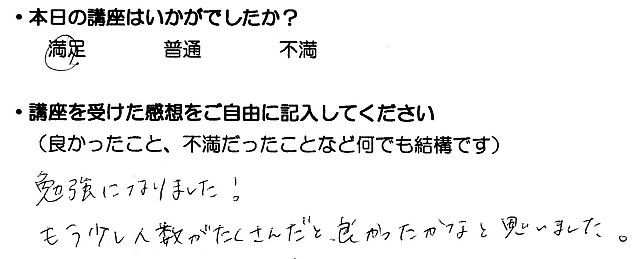 ・本日の講座はいかがでしたか？
満足　普通　不満
・講座を受けた感想をご自由に記入してください
（良かったこと、不満だったことなど何でも結構です）
勉強になりました！
もう少し人数がたくさんだと良かったかなと思いました。